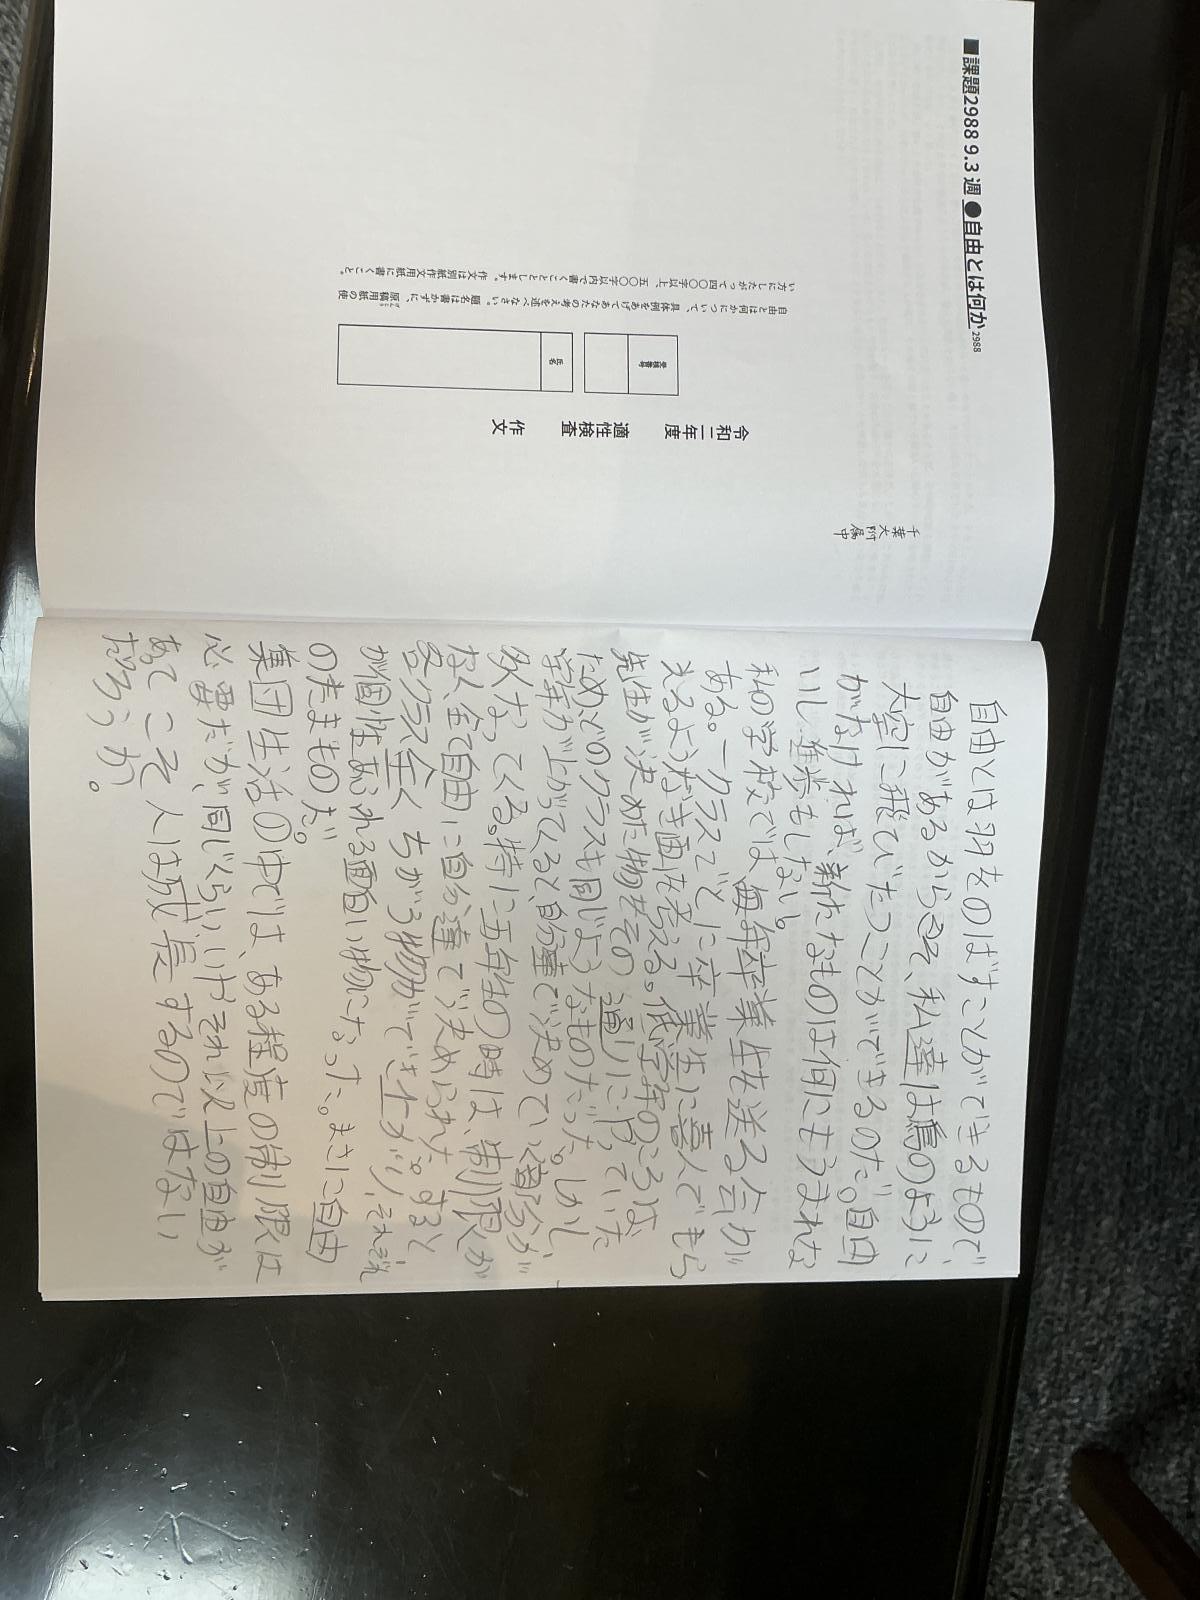 ■課題2988 9.3 週 ●自由とは何か2988
自由とは何かについて、具体例をあげてあなたの考えを述べなさい。題名は書かずに、原稿用紙の使
い方にしたがって四〇〇字以上、五〇〇字以内で書くこととします。作文は別紙作文用紙に書くこと。
受検番号
氏名
令和二年度
適性検査
作文
千葉大附属中
自由とは羽をのばすことができるもので、
自由があるからこそ、私達は鳥のように
大空に飛びたつことができるのだ。自由
がなければ、新たなものは何にもうまれな
いし進歩もしない。
私の学校では、毎年卒業生を送る会が
ある。一クラスごとに卒業生に喜んでもら
えるようなき画を考える。低学年のころは
先生が決めた物をその通りに行っていた
ためどのクラスも同じようなものだった。しかし、
学年が上がってくると、自分達で決めていく部分が
多くなってくる。特に五年生の時は、制限が
なく、全て自由に自分達で決められた。すると
各クラス全くちがう物ができ上がり、それぞれ
が個性あふれる面白い物になった。まさに自由
のたまものだ。
集団生活の中では、ある程度の制限は
必要だが、同じくらい、いやそれ以上の自由が
あってこそ人は成長するのではない
だろうか。